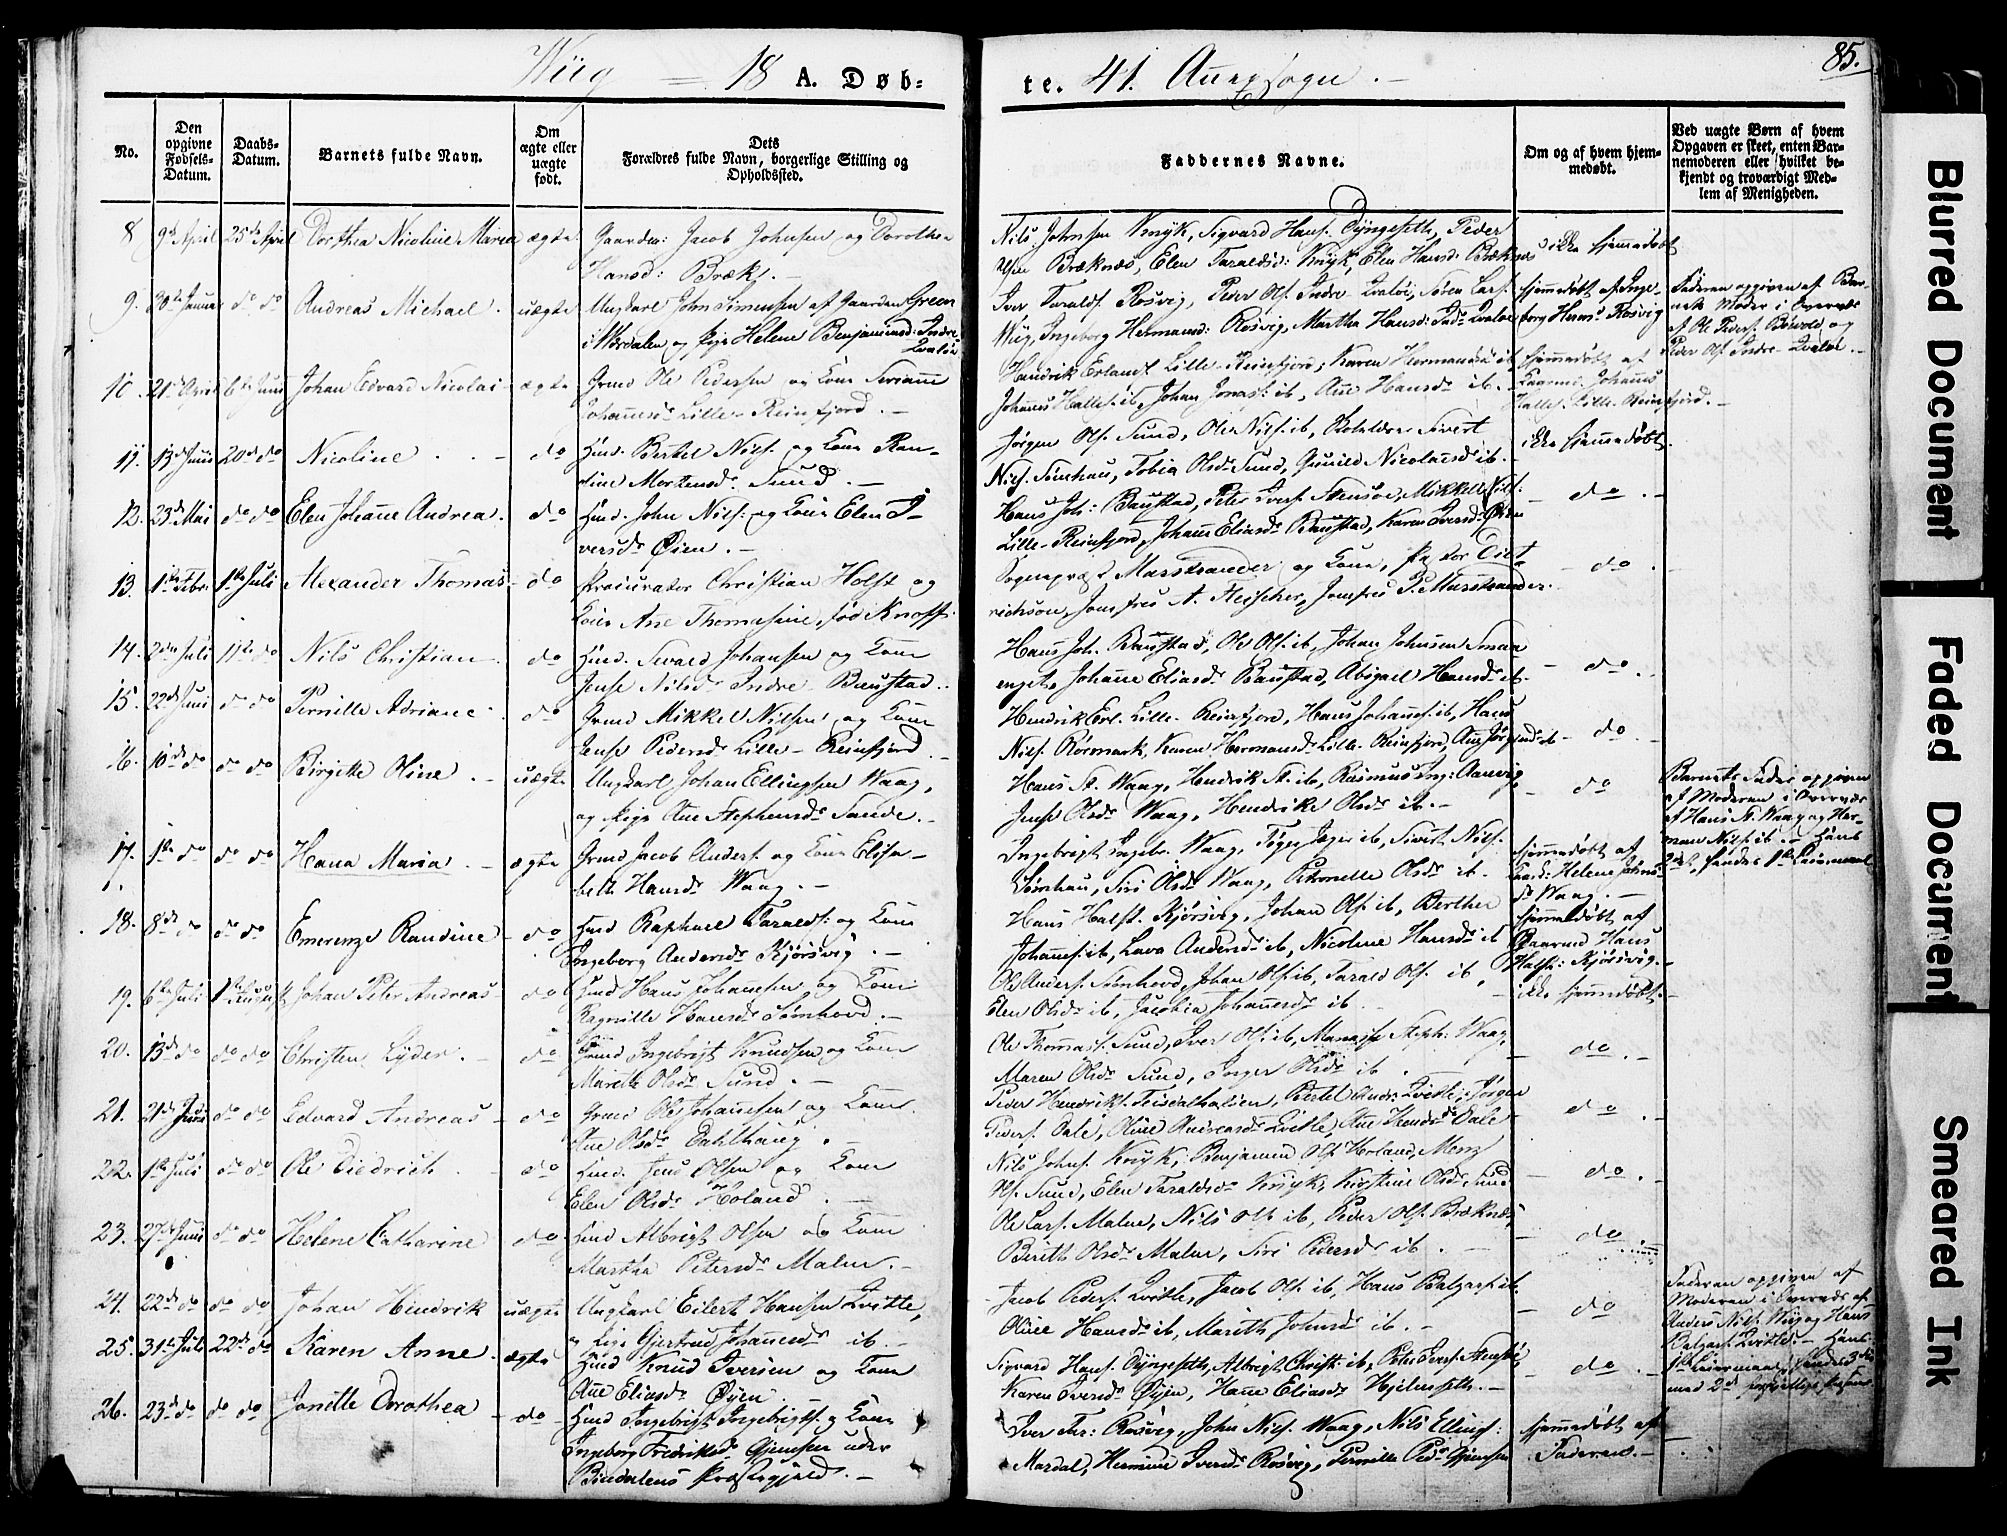 Wiig = 18 A. Døb-
te. 41. Sogn. —
85.
No.
Den opgivne Fødsels-Datum.
Daabs-Datum.
Barnets fulde Navn.
Om ægte eller uægte født.
Dets
Forældres fulde Navn, borgerlige Stilling og
Opholdssted.
Faddernes Navne.
Om og af hvem hjem-
medøbt.
Ved uægte Børn af hvem
Opgaven er skeet, enten Bar-
nemoderen eller hvilket be-
kjendt og troværdigt Med-
lem af Menigheden.
8 9de April 25de April Dorthea Nicoline Maria ægte Gaardm: Jacob Johnsen og Dorothea
Hansd: Bræk.
Nils Johnsen Sigvard Hans. Dyngeseth, Peder
Olsen Bræknæs, Elen Taraldsd: Elen Hansd: Bræknæs
ikke hjemmedøbt
9. 30te Januar do do Andreas Michael. uægte Ungkarl John Simensen af Gaarden Green
i Værdalen og Pige Helene Benjaminsd: Indre
Qvaløe
Iver Taralds. Rosvig, Peder Ols. Indre Qvaløi, Søren Lars.
Wiig, Ingeborg Hermansd: Rosvig, Martha Hansd: Inds Qvaløe
hjemmedøbt af Inge-
borg Herms Rosvig
Faderen opgiven af Bar-
nets Moder i Overvær
af Ole Peders. og
Peder Ols. Indre Qvaløe. —
10. 21de April 6te Juni Johan Edvard Nicolai ægte Grmd Ole Pedersen og Kone
Johannesdr Lille-Reinfjord. —
Hendrik Erlandt Lille-Reinfjord, Karen Hermansdr ib
Johannes Halles. ib, Johan Jonas. ib, Ane Hansdr ib.
hjemmedøbt af
Gaarmd. Johannes
Halles. Lille-Reinfjord. —
11. 13de Juni 20de do Nicoline do Hmd. Bertel Nils. og Kone Ran-
dine Mortensdr Sund. —
Jørgen Ols. Sund, Ole Nils. ib, Sivert
Nils. Sømhau, Tobia Olsdr Sund, Gunild Nicolaisdr ib.
ikke hjemmedøbt.
12. 23de Mai do do Elen Johanne Andrea. do Hmd. John Nils. og Kone Elen I-
versdr Øien. —
Hans Joh: Baustad, Peter Ivers. Mikkel Nils:
Lille-Reinfjord, Johanne Eliasdr Baustad, Karen Iversdr Øien
— do. —
13. 1ste Febr. 1ste Juli Alexander Thomas do Procurator Christian Holst og
Kone Ane Thomasine, fød Knoff.
Sognepræst Marstrander og Kone, Pastor Died-
richson, Jomfru A. Fleischer, Jomfru P. Marstrander.
— do. —
14. 2den Juli 11te do Nils Christian do Hmd. Sivard Johansen og Kone
Jense Nilsdr Indre-Baustad.
Hans Joh. Baustad, Ole Ols. ib, Johan Johnsen Smaa
enget, Johanne Eliasdr Baustad, Abigael Hansdr ib.
— do. —
15. 22de Juni do do Pernille Adriane. do Grmd Mikkel Nilsen og Kone
Jense Pedersdr Lille-Reinfjord. —
Hendrik Erl. Lille-Reinfjord, Hans Johannes. ib, Hans
Nils. Rørmark, Karen Hermansdr Lille-Reinfjord, Ane Jørgensdr ib
— do. —
16. 10de do do do Birgitte Oline. — uægte Ungkarl Johan Ellingsen Waag,
og Pige Ane Stephensdr Sande. —
Hans St. Waag, Hendrik St. ib, Rasmus Ing: Aarsvig
Jense Olsdr Waag, Hendrike Olsdr ib. —
do
Barnets Fader opgiven
af Moderen i Overvær
af Hans St. Waag og Her-
man Nils. ib. — Hans
2det, hendes 1ste Leiermaal
17. 1ste do do do Hana Maria. — ægte Grmd Jacob Anders. og Kone Elisa-
beth Hansdr Waag. —
Ingebrigt Ingebr. Waag, Tøger Jæger ib, Sivert Nils.
Sømhau, Siri Olsdr Waag, Petronelle Olsdr ib.
hjemmedøbt af
Helene Johns-
dr Waag. —
18. 8de do do do Emerenze Randine do Hmd Raphael Taralds: og Kone
Ingeborg Andersdr Kjørsvig. —
Hans Halfs. Kjørsvig, Johan Ols. ib, Berther
Johannes. ib, Lava Andersdr ib, Nicoline Hansdr ib
hjemmedøbt af
Gaarmd Hans
Halfs: Kjørsvig. —
19. 6te Juli 1ste August Johan Peter Andreas do Hmd Hans Johannesen og Kone
Ragnille Hansdr Sømhovd. —
Ole Anders. Sømhovd, Johan Ols. ib, Tarald Ols. ib,
Elen Olsdr ib, Jacobia Johannesdr ib.
ikke hjemmedøbt. —
20. 13de do do do Christen Lyder. — do Grmd Ingebrigt Knudsen og Kone
Marethe Olsdr Sund. —
Ole Thomas. Sund, Iver Ols. ib, Manasse Steph: Waag,
Maren Olsdr Sund, Inger Olsdr ib.
— do. —
21. 21de Juni do do Edvard Andreas — do Grmd Ole Johannesen og Kone
Ane Olsdr Dahlhaug. —
Peder Hendriks. Bertel Andr. Qvitle, Jørgen
Peders. Dale, Oline Andreasdr Qvitle, Ane Hendr Dale
do. —
22. 1ste Juli do do Ole Diedrich. do Hmd. Jens Olsen og Kone
Elen Olsdr Høland. —
Nils Johns. Benjamin Ols. Horland,
Ols. Sund, Elen Taraldsdr Kirstine Olsdr Sund
do. —
23. 27de Juni do do Helene Catharine do. Hmd Albrigt Olsen og Kone
Martha Petersdr Malm. —
Ole Lars. Malm, Nils Ols ib, Peder Ols. Bræknæs,
Berith Olsdr Malm, Siri Pedersdr ib.
— do. —
24. 22de do do do Johan Hendrik uægte Ungkarl Eilert Hansen Qvitle,
og Pige Gjertrud Johannesdr ib. —
Jacob Peders. Qvitle, Jacob Ols. ib, Hans Balzars. ib.
Oline Hansdr ib, Marith Johnsdr ib. —
— do
Faderen opgiven af
Moderen i Overvær af
Anders Nils. Wiig og Hans
Balzars. Qvitle — Hans
1ste Leiermaal, hendes 3die
med 2de forskjellige Personer
25. 31te Juli 22de do Karen Anne. ægte Hmd Knud Iversen og Kone
Ane Eliasdr Øyen. —
Sigvard Hans. Dyngeseth, Albrigt Christ. ib, Peter Ivers.
Karen Iversdr Øyen, Hane Eliasdr Hjelmseth. —
— do. —
26. 23de do do do Jonille Dorothea — do Hmd Ingebrigt Ingebrigts. og Kone
Ingeborg Fredriksdr Gjemsen under
Bindalens Præstegjeld. —
Iver Tar: Rosvig, John Nils. Waag, Nils Ellings:
Mardal, Hermine Iversdr Rosvig, Pernille Pedr Gjemsen
hjemmedøbt af
Faderen. —
Blurred Document
Faded Document
Smeared Ink